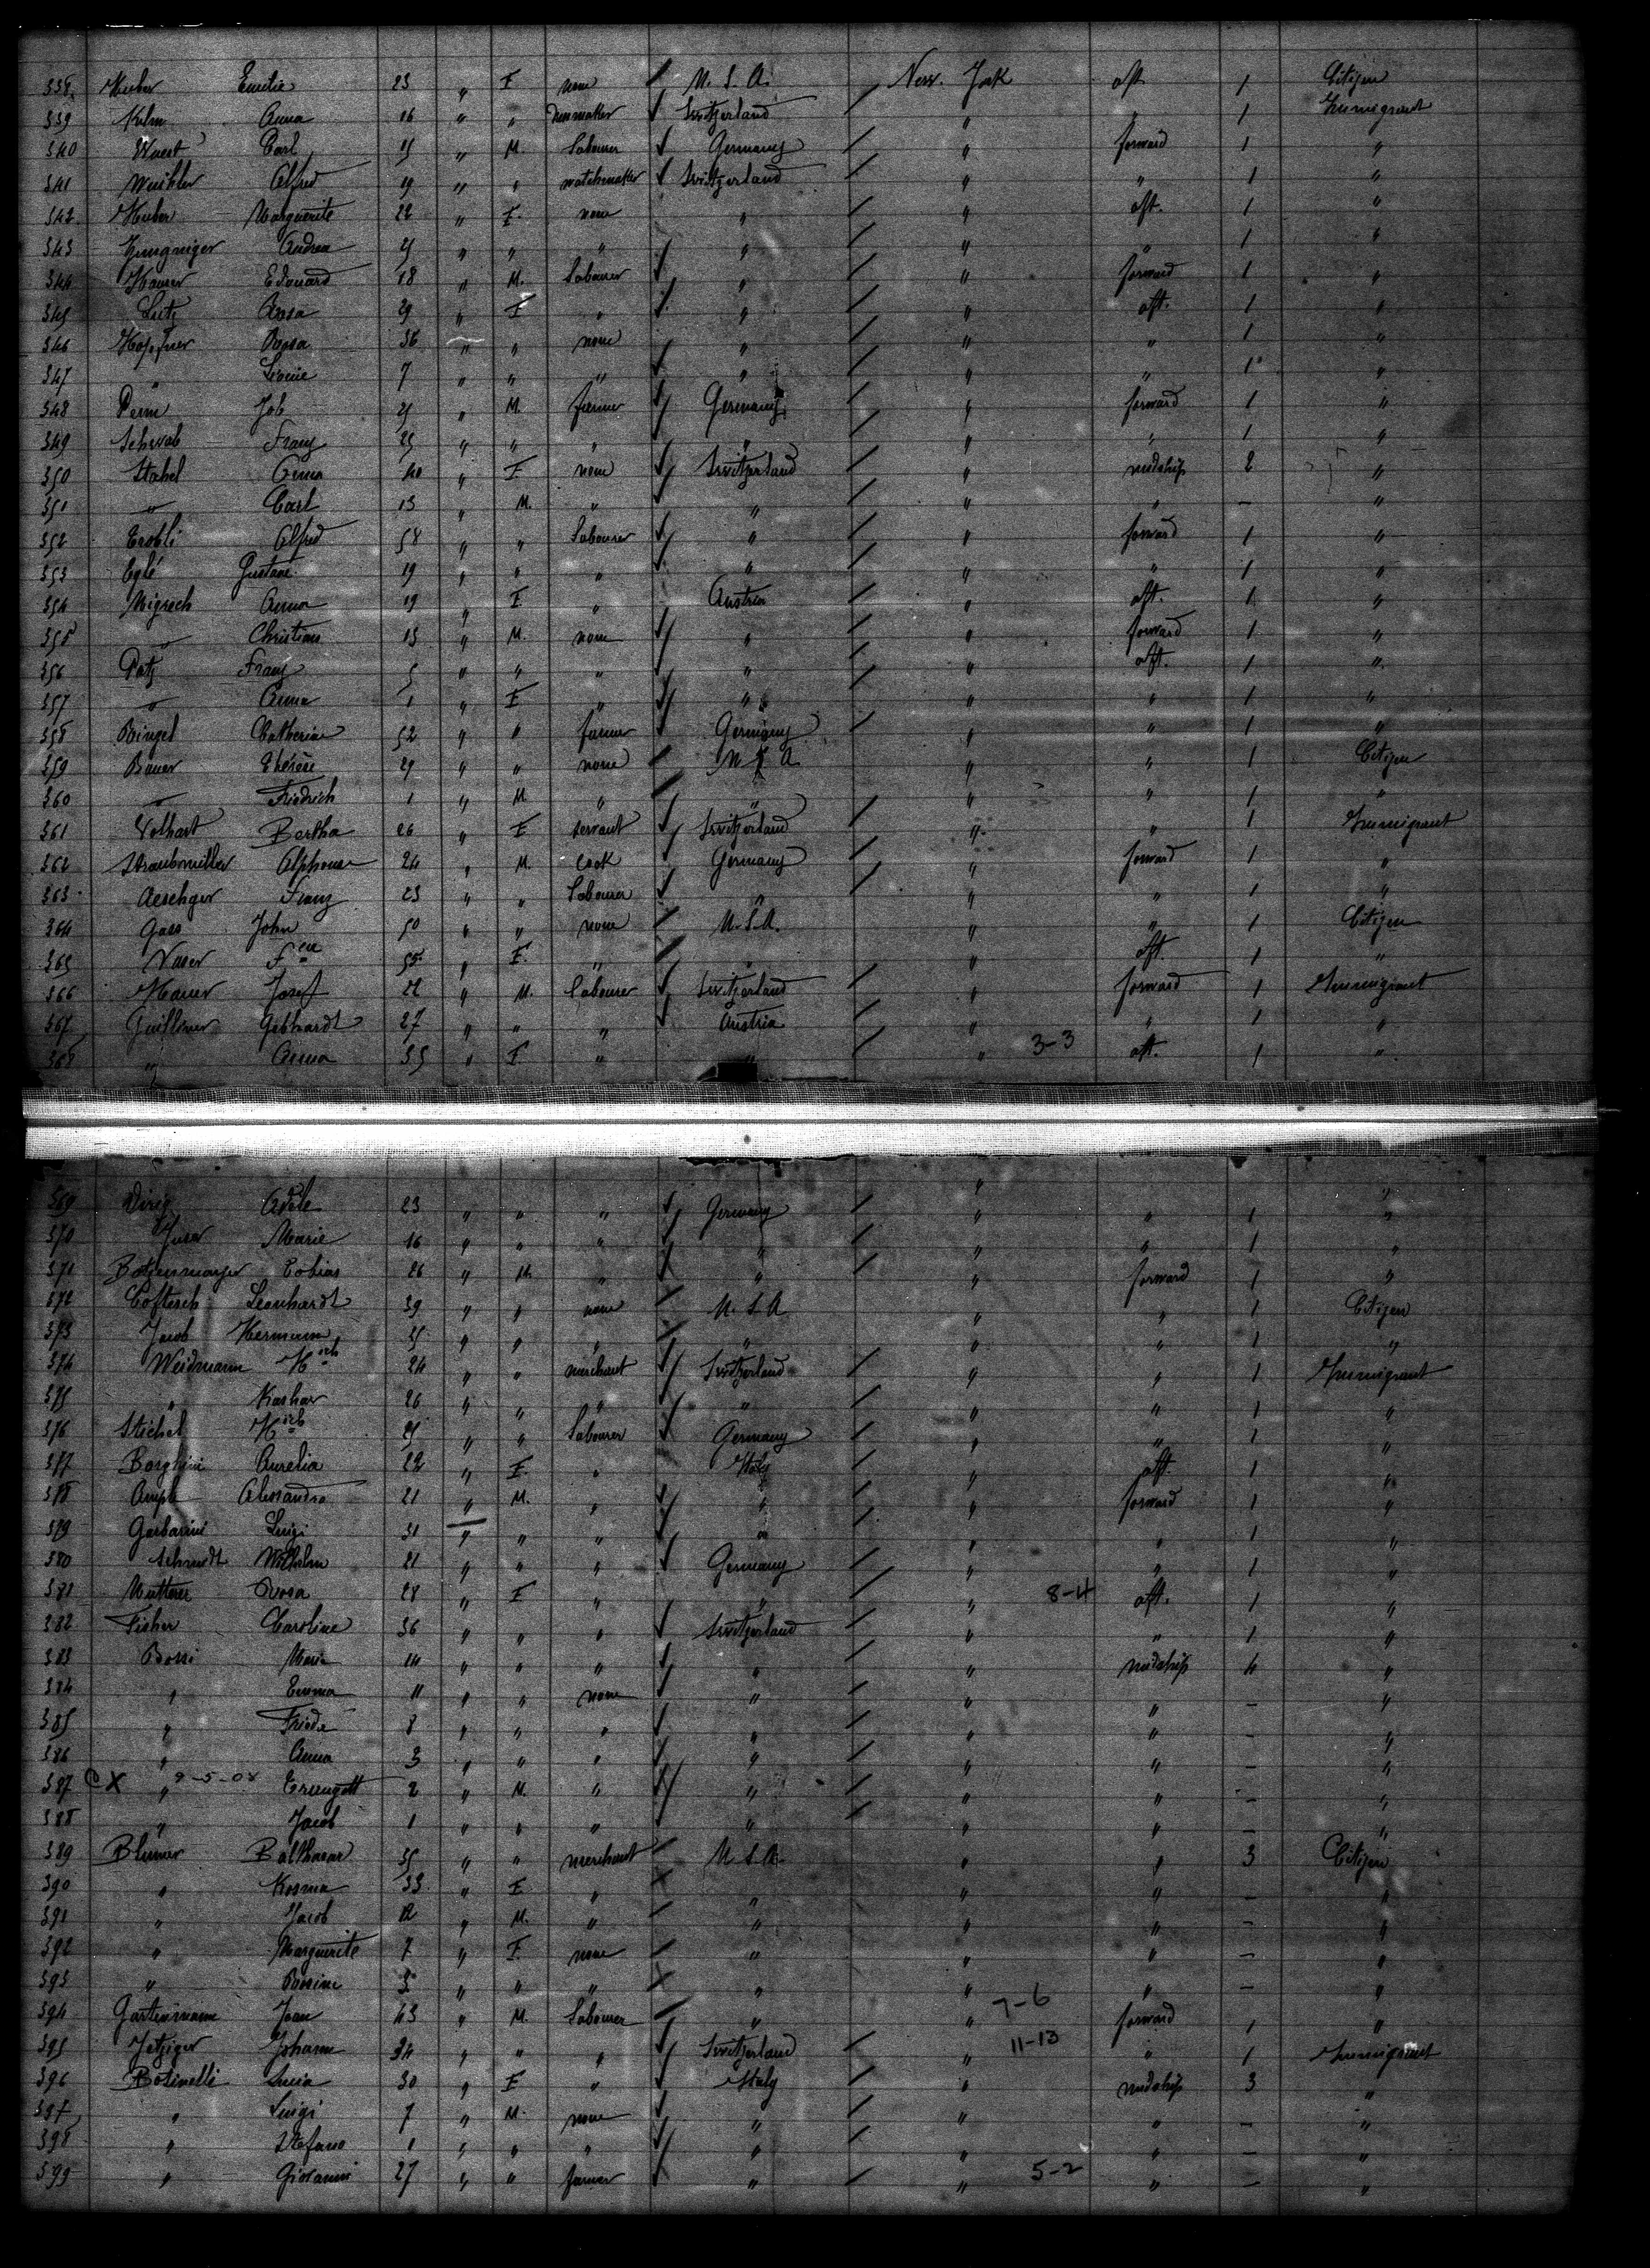 338 Huber Emilie 23 " F none U.S.A. New-York aft. 1 Citizen
339 Anna 16 " " Switzerland " " 1 Immigrant
340 Carl " M. Labourer Germany " forward 1 "
341 Alfred 19 " " watchmaker Switzerland " " 1 "
342 Huber Marguerite 22 " F. none " " aft. 1 "
343 " " " " " " 1 "
344 Edouard 18 " M. Labourer " " forward 1 "
345 Lutz Rosa 29 " F " " " aft. 1 "
346 Rosa 36 " " none " " " 1 "
347 " 7 " " " " " " 1 "
348 Job " M. farmer Germany " forward 1 "
349 Schwab Franz 25 " " " " " " 1 "
350 Stahel Anna 40 " F. none Switzerland " midship 2 "
351 " Carl 13 " M. " " " " - "
352 Alfred 58 " " Labourer " " forward 1 "
353 Eglé Gustave 19 " " " " " " 1 "
354 Anna 19 " F. " Austria " aft. 1 "
355 " Christian 13 " M. none " " forward 1 "
356 Franz 5 " " " " " aft. 1 "
357 " Anna 1 " F " " " " 1 "
358 Catherine 52 " " farmer Germany " " 1 "
359 Bauer Thérèse " " none U.S.A. " " 1 Citizen
360 " Friedrich 1 " M. " " " " 1 "
361 Volhart Bertha 26 " F servant Switzerland " " 1 Immigrant
362 Straubmüller Alphonse 24 " M. cook Germany " forward 1 "
363 Aeschger Franz 23 " " Labourer " " " 1 "
364 Gass John 50 " " none U.S.A. " " 1 Citizen
365 55 " F. " " " aft. 1 "
366 Josef 22 " M. Labourer Switzerland " forward 1 Immigrant
367 Gebhardt 27 " " " Austria " " 1 "
368 " Anna 35 " F. " " " 3-3 aft. 1 "
369 Adele 23 " " " Germany " " 1 "
370 Marie 16 " " " " " " 1 "
371 Tobias 26 " M. " " " forward 1 "
372 Leonhardt 39 " " none U.S.A. " " 1 Citizen
373 Jacob Hermann 35 " " " " " " 1 "
374 Weidmann Hch 24 " " merchant Switzerland " " 1 Immigrant
375 " 26 " " " " " " 1 "
376 Stichel Hch " " Labourer Germany " " 1 "
377 Borghini Aurelia 22 " F. " Italy " aft. 1 "
378 Alessandro 21 " M. " " " forward 1 "
379 Garbarini Luigi 31 " " " " " " 1 "
380 Schmidt Wilhelm 21 " " " Germany " " 1 "
381 Rosa 28 " F " " " 8-4 aft. 1 "
382 Fisher Caroline 36 " " " Switzerland " " 1 "
383 Bossi Maria 14 " " " " " midship 4 "
384 " Emma 11 " " none " " " - "
385 " Frieda 8 " " " " " " - "
386 " Anna 3 " " " " " " - "
387 CX " 9-5-08 2 " M. " " " " - "
388 " Jacob 1 " " " " " " - "
389 Blumer Balthasar 35 " " merchant U.S.A. " " 3 Citizen
390 " 33 " F. " " " " - "
391 " Jacob 12 " M. " " " " - "
392 " Marguerite 7 " F. none " " " - "
393 " " " " " " " - "
394 Gartenmann 43 " M. Labourer " " 7-6 forward 1 "
395 Johann 34 " " " Switzerland " 11-13 " 1 Immigrant
396 Botinelli Lucia 30 " F " Italy " midship 3 "
397 " Luigi 7 " M. none " " " - "
398 " Stefano 1 " " " " " " - "
399 " Giovanni 27 " " farmer " " 5-2 " - "